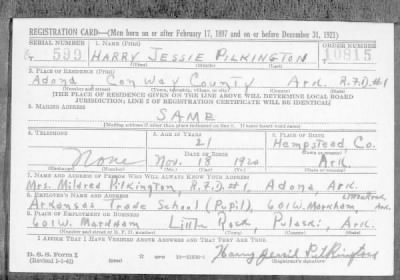 REGISTRATION CARD—(Men born on or after February 17, 1897 and on or before December 31, 1921)
SERIAL NUMBER 1. NAME (Print) ORDER NUMBER
T 599 HARRY JESSIE PILKINGTON 10815
(First) (Middle) (Last)
2. PLACE OF RESIDENCE (Print)
Adona Conway County Ark. R.F.D.#1
(Number and street) (Town, township, village, or city) (County) (State)
[THE PLACE OF RESIDENCE GIVEN ON THE LINE ABOVE WILL DETERMINE LOCAL BOARD
JURISDICTION; LINE 2 OF REGISTRATION CERTIFICATE WILL BE IDENTICAL]
3. MAILING ADDRESS
SAME
[Mailing address if other than place indicated on line 2. If same insert word same]
4. TELEPHONE 5. AGE IN YEARS 6. PLACE OF BIRTH
21 Hempstead Co.
DATE OF BIRTH (Town or county)
None Nov. 18 1920 Ark.
(Exchange) (Number) (Mo.) (Day) (Yr.) (State or country)
7. NAME AND ADDRESS OF PERSON WHO WILL ALWAYS KNOW YOUR ADDRESS
Mrs. Mildred Pilkington, R.F.D.#1, Adona, Ark.
8. EMPLOYER'S NAME AND ADDRESS
Arkansas Trade School (Pupil), 601 W. Markham, Little Rock, Ark.
9. PLACE OF EMPLOYMENT OR BUSINESS
601 W. Markham Little Rock, Pulaski, Ark.
(Number and street or R. F. D. number) (Town) (County) (State)
I AFFIRM THAT I HAVE VERIFIED ABOVE ANSWERS AND THAT THEY ARE TRUE.
D. S. S. Form 1
(Revised 1-1-42) (over) Harry Jessie Pilkington
(Registrant's signature)